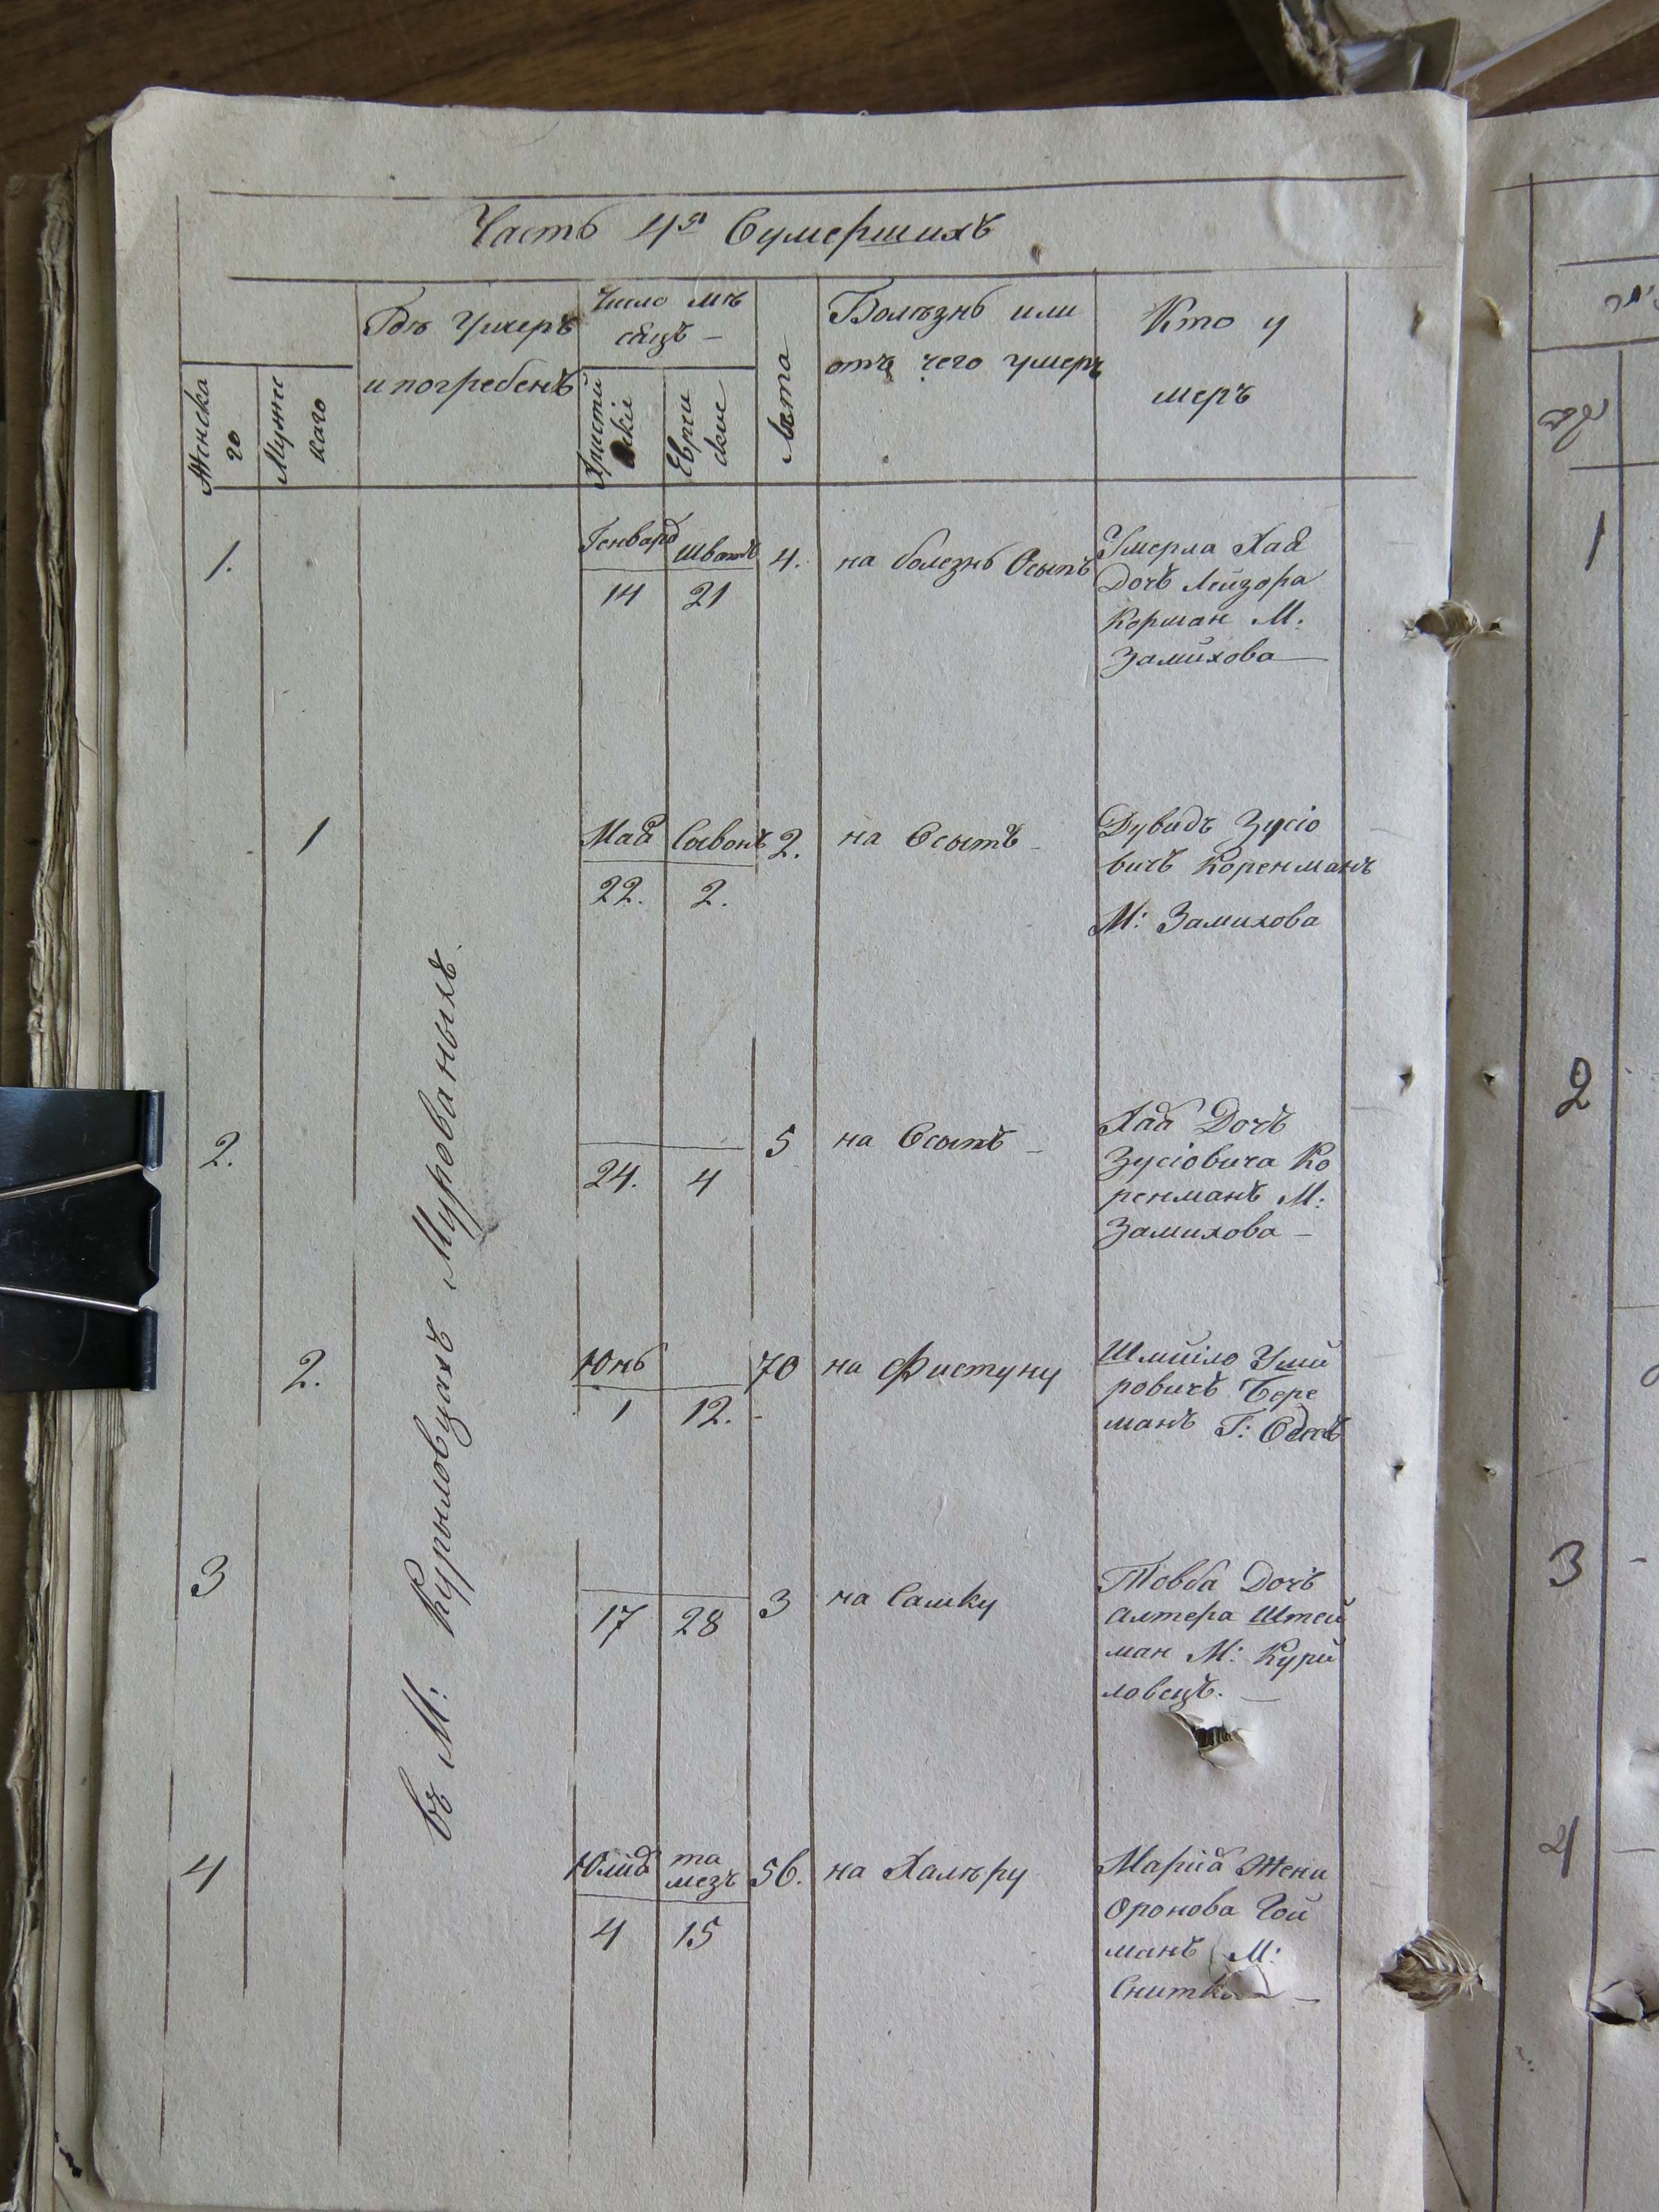 Часть 4я Сумершихъ
Женска
го
Мужес
каго
Гдѣ Умеръ
и погребенъ
Число мѣ
сяцъ —
Христи
скіе
Евреи
ские
Лѣта
Болѣзнь или
отъ чего умеръ
Кто у
меръ
1.
Генваря
14
Шватъ
21
4.
на болезнь Осыпъ
Умерла Хая
Дочъ Лейзора
Корман М.
Замихова —
1
Мая
22.
Сывонъ
2.
2.
на Осыпъ —
Дувидъ Зусіо
вичъ Коренманъ
М: Замихова
2.
24.
4
5
на Осыпъ —
Хая Дочъ
Зусіовича Ко
ренманъ М:
Замихова —
2.
Юнь
1
12.
70
на Фистуну
Шмиіло Уши
ровичъ Бере
манъ Г:
3
17
28
3
на Самку
Товба Дочъ
Алтера Штей
ман М: Кури
ловецъ. —
4
Юлія
4
та
мезъ
15
56.
на Халѣру
Марія Жена
Оронова Гой
манъ М:
въ М: Курыловцихъ Мурованыхъ.
1
2
3
4